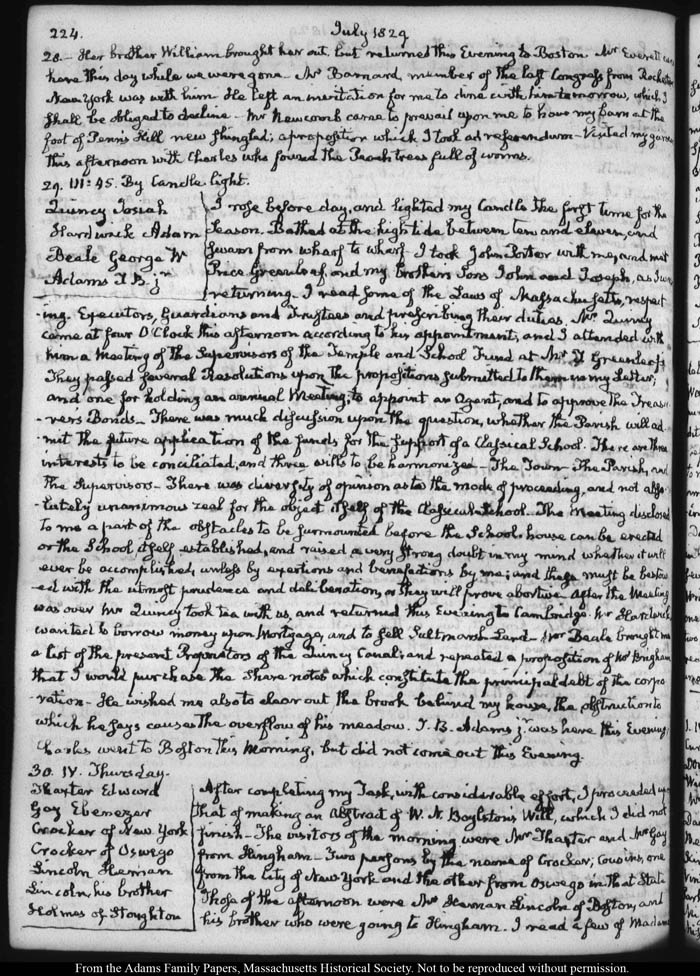 224.
July 1829
28. — Her brother William brought her out, but returned this Evening to Boston. Mr Everett came
here this day while we were gone — Mr Barnard, member of the last Congress from Rochester
New York was with him. He left an invitation for me to dine with him tomorrow, which I
shall be obliged to decline — Mr Newcomb came to prevail upon me to have my barn at the
foot of Penn's Hill new shingled; a proposition which I took ad referendum — Visited my garden
this afternoon with Charles who found the Peach trees full of worms.
29. III: 45. By Candle light.
Quincy Josiah
Hardwick Adam
Beale George W
Adams T. B. jr
I rose before day, and lighted my Candle the first time for the
Season. Bathed at the high tide between ten and eleven, and
swam from wharf to wharf. I took John Porter with me, and met
Price Greenleaf, and my brothers Sons John and Joseph, as I was
returning. I read some of the Laws of Massachusetts, respect
-ing. Executors, Guardians and Trustees and prescribing their duties. Mr. Quincy
came at four O'Clock this afternoon according to his appointment, and I attended with
him a meeting of the Supervisors of the Temple and School Fund at Mr T Greenleaf's
They passed several Resolutions upon the propositions submitted to them in my Letter;
and one for holding an annual Meeting; to appoint an Agent, and to approve the Treasu
-rer's Bonds — There was much discussion upon the question, whether the Parish will ad
-mit the future application of the funds for the support of a Classical School. There are three
interests to be conciliated, and three wills to be harmonized — The Town — The Parish, and
the Supervisors — There was diversity of opinion as to the mode of proceeding, and not abso
-lutely unanimous zeal for the object itself of the Classical School. The Meeting disclosed
to me a part of the obstacles to be surmounted before the School house can be erected
or the School itself established, and raised a very strong doubt in my mind whether it will
ever be accomplished, unless by exertions and benefactions by me; and these must be bestow
-ed with the utmost prudence and deliberation, or they will prove abortive. After the Meeting
was over Mr Quincy took tea with us, and returned this Evening to Cambridge. Mr Hardwick
wanted to borrow money upon Mortgage, and to sell Saltmarsh Land — Mr Beale brought me
a list of the present Proprietors of the Quincy Canal; and repeated a proposition of Mr Brigham
that I would purchase the share notes which constitute the principal debt of the corpo
-ration — He wished me also to clear out the brook behind my house, the obstruction to
which he says causes the overflow of his meadow. T. B. Adams jr was here this Evening
Charles went to Boston this Morning, but did not come out this Evening.
30. IV. Thursday.
Thaxter Edward
Gay Ebenezer
Crocker of New York
Crocker of Oswego
Lincoln Heman
Lincoln, his brother
Holmes of Stoughton
After completing my Task, with considerable effort, I proceeded upon
that of making an Abstract of W. N. Boylston's Will, which I did not
finish — The visitors of the morning were Mr Thaxter and Mr Gay
from Hingham — Two persons by the name of Crocker; Cousins, one
from the City of New York and the other from Oswego in that State
Those of the afternoon were Mr Heman Lincoln of Boston, and
his brother who were going to Hingham. I read a few of Madame
From the Adams Family Papers, Massachusetts Historical Society. Not to be reproduced without permission.